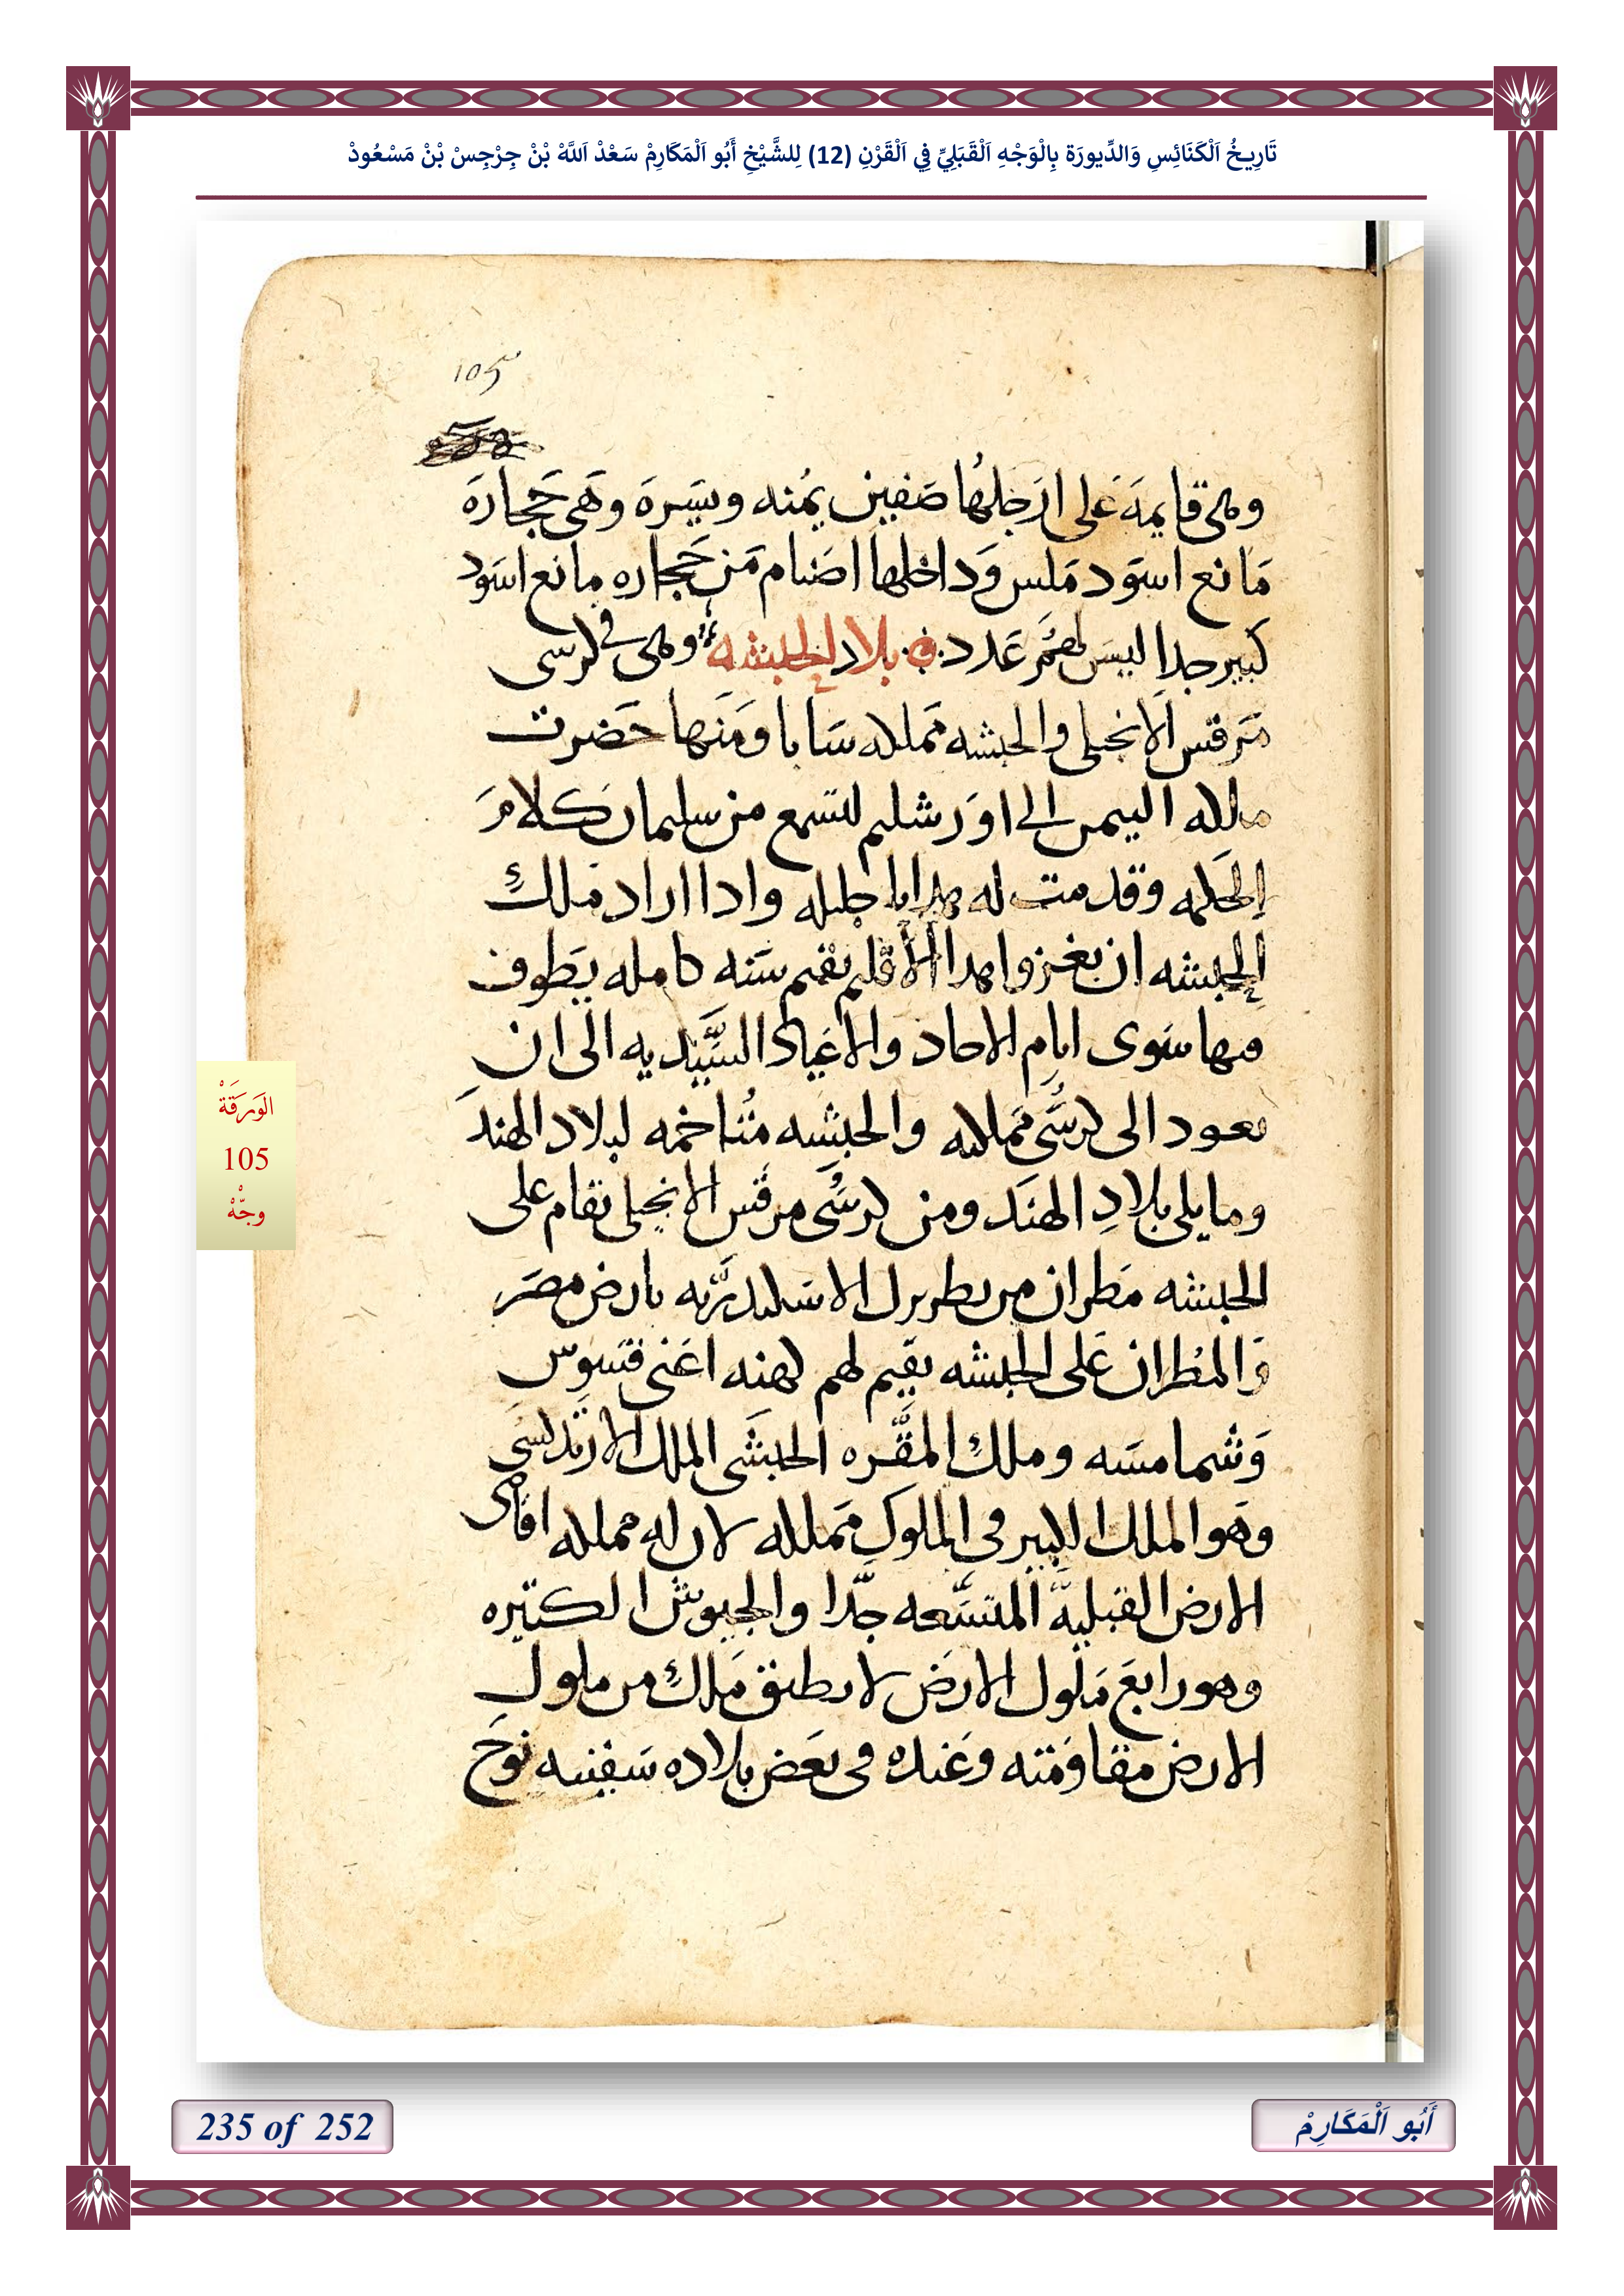 تَارِيخُ اَلْكَنَائِسِ وَالدِّيورَة بِالْوَجْهِ اَلْقَبَلِيِّ فِي اَلْقَرْنِ (12) لِلشَّيْخِ أَبُو اَلْمَكَارِمْ سَعْدْ اَللَّهْ بْنْ جِرْجِسْ بْنْ مَسْعُودْ
105
وهى قايمه على ارجلها صفين يمنه ويسره وهى حجاره
مانع اسود ملس وداخلها اصنام من حجاره مانع اسود
كبير جدا ليس لهم عدد بلاد الحبشه وهى فى كرسى
مرقس الانجيلى والحبشه مملكه سابا ومنها حضرت
ملكه اليمن الى اورشليم لتسمع من سليمان كلام
الحكمه وقدمت له هدايا جليله وادا اراد ملك
الحبشه ان يغزوا هدا الاقليم يقيم سنه كامله يطوف
فيها سوى ايام الاحاد والاعياد السيديه الى ان
يعود الى كرسى مملكته والحبشه متاخمه لبلاد الهند
وما يلى بلاد الهند ومن كرسى مرقس الانجيلى تقام على
الحبشه مطران من بطريرك الاسكندريه بارض مصر
والمطران على الحبشه يقيم لهم كهنه اعنى قسوس
وشمامسه وملك المقره الحبشى الملك الارتدكسى
وهو الملك الكبير فى الملوك مملكه لان له مملكه اقاصى
الارض القبلية المتسعه جدا والجيوش الكتيره
وهو رابع ملوك الارض لا يطيق ملك من ملوك
الارض مقاومته وعنده فى بعض بلاده سفينه نوح
الوَرَقَةْ
105
وجّهْ
235 of 252
أَبُو اَلْمَكَارِمْ